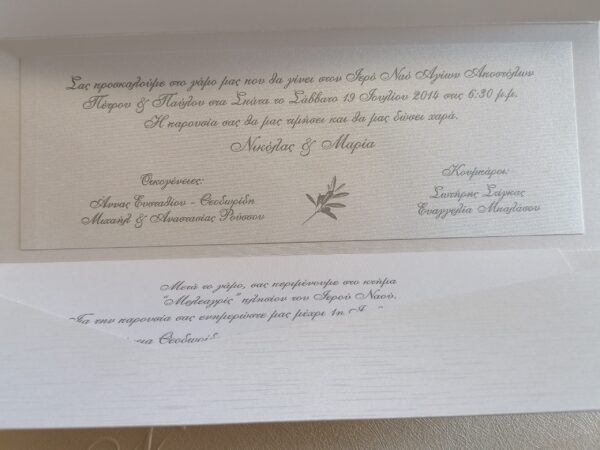 Σας προσκαλούμε στο γάμο μας που θα γίνει στον Ιερό Ναό Αγίων Αποστόλων
Πέτρου & Παύλου στα Σπάτα το Σάββατο 19 Ιουλίου 2014 στις 6:30 μ.μ.
Η παρουσία σας θα μας τιμήσει και θα μας δώσει χαρά.
Νικόλας & Μαρία
Οικογένειες:
Άννας Ευσταθίου - Θεοδωρίδη
Μιχαήλ & Αναστασίας Ρούσσου
Κουμπάροι:
Σωτήρης Σάγκας
Ευαγγελία Μπαλάσου
Μετά το γάμο, σας περιμένουμε στο κτήμα
"Μελεαγρίς" πλησίον του Ιερού Ναού.
Για την παρουσία σας ενημερώστε μας μέχρι 1η